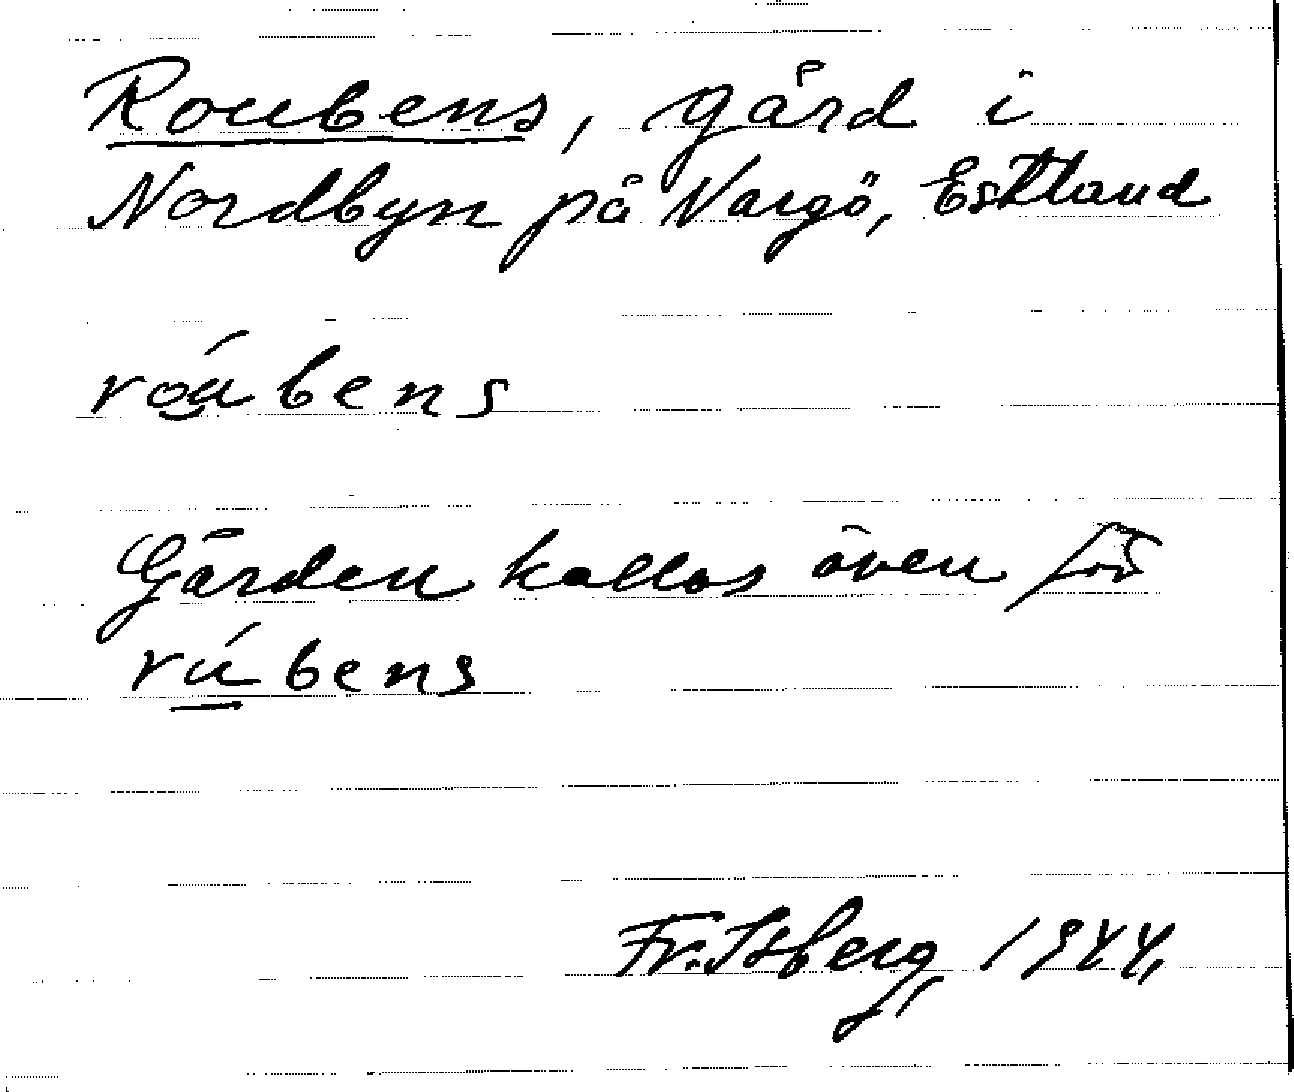 Roubens, gård i
Nordbyn på Nargö, Estland
róubens
Gården kallas även för
rúbens
Fr. Isberg, 1944.